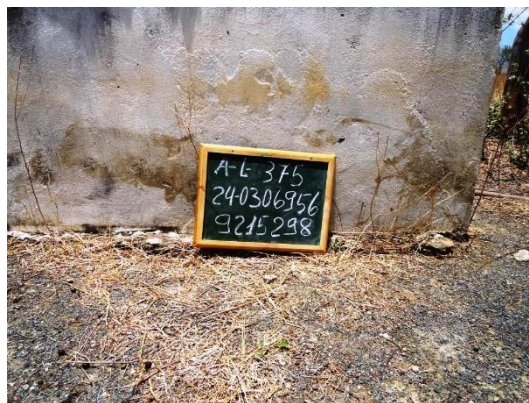 A-L 375
24-0306956
9215298